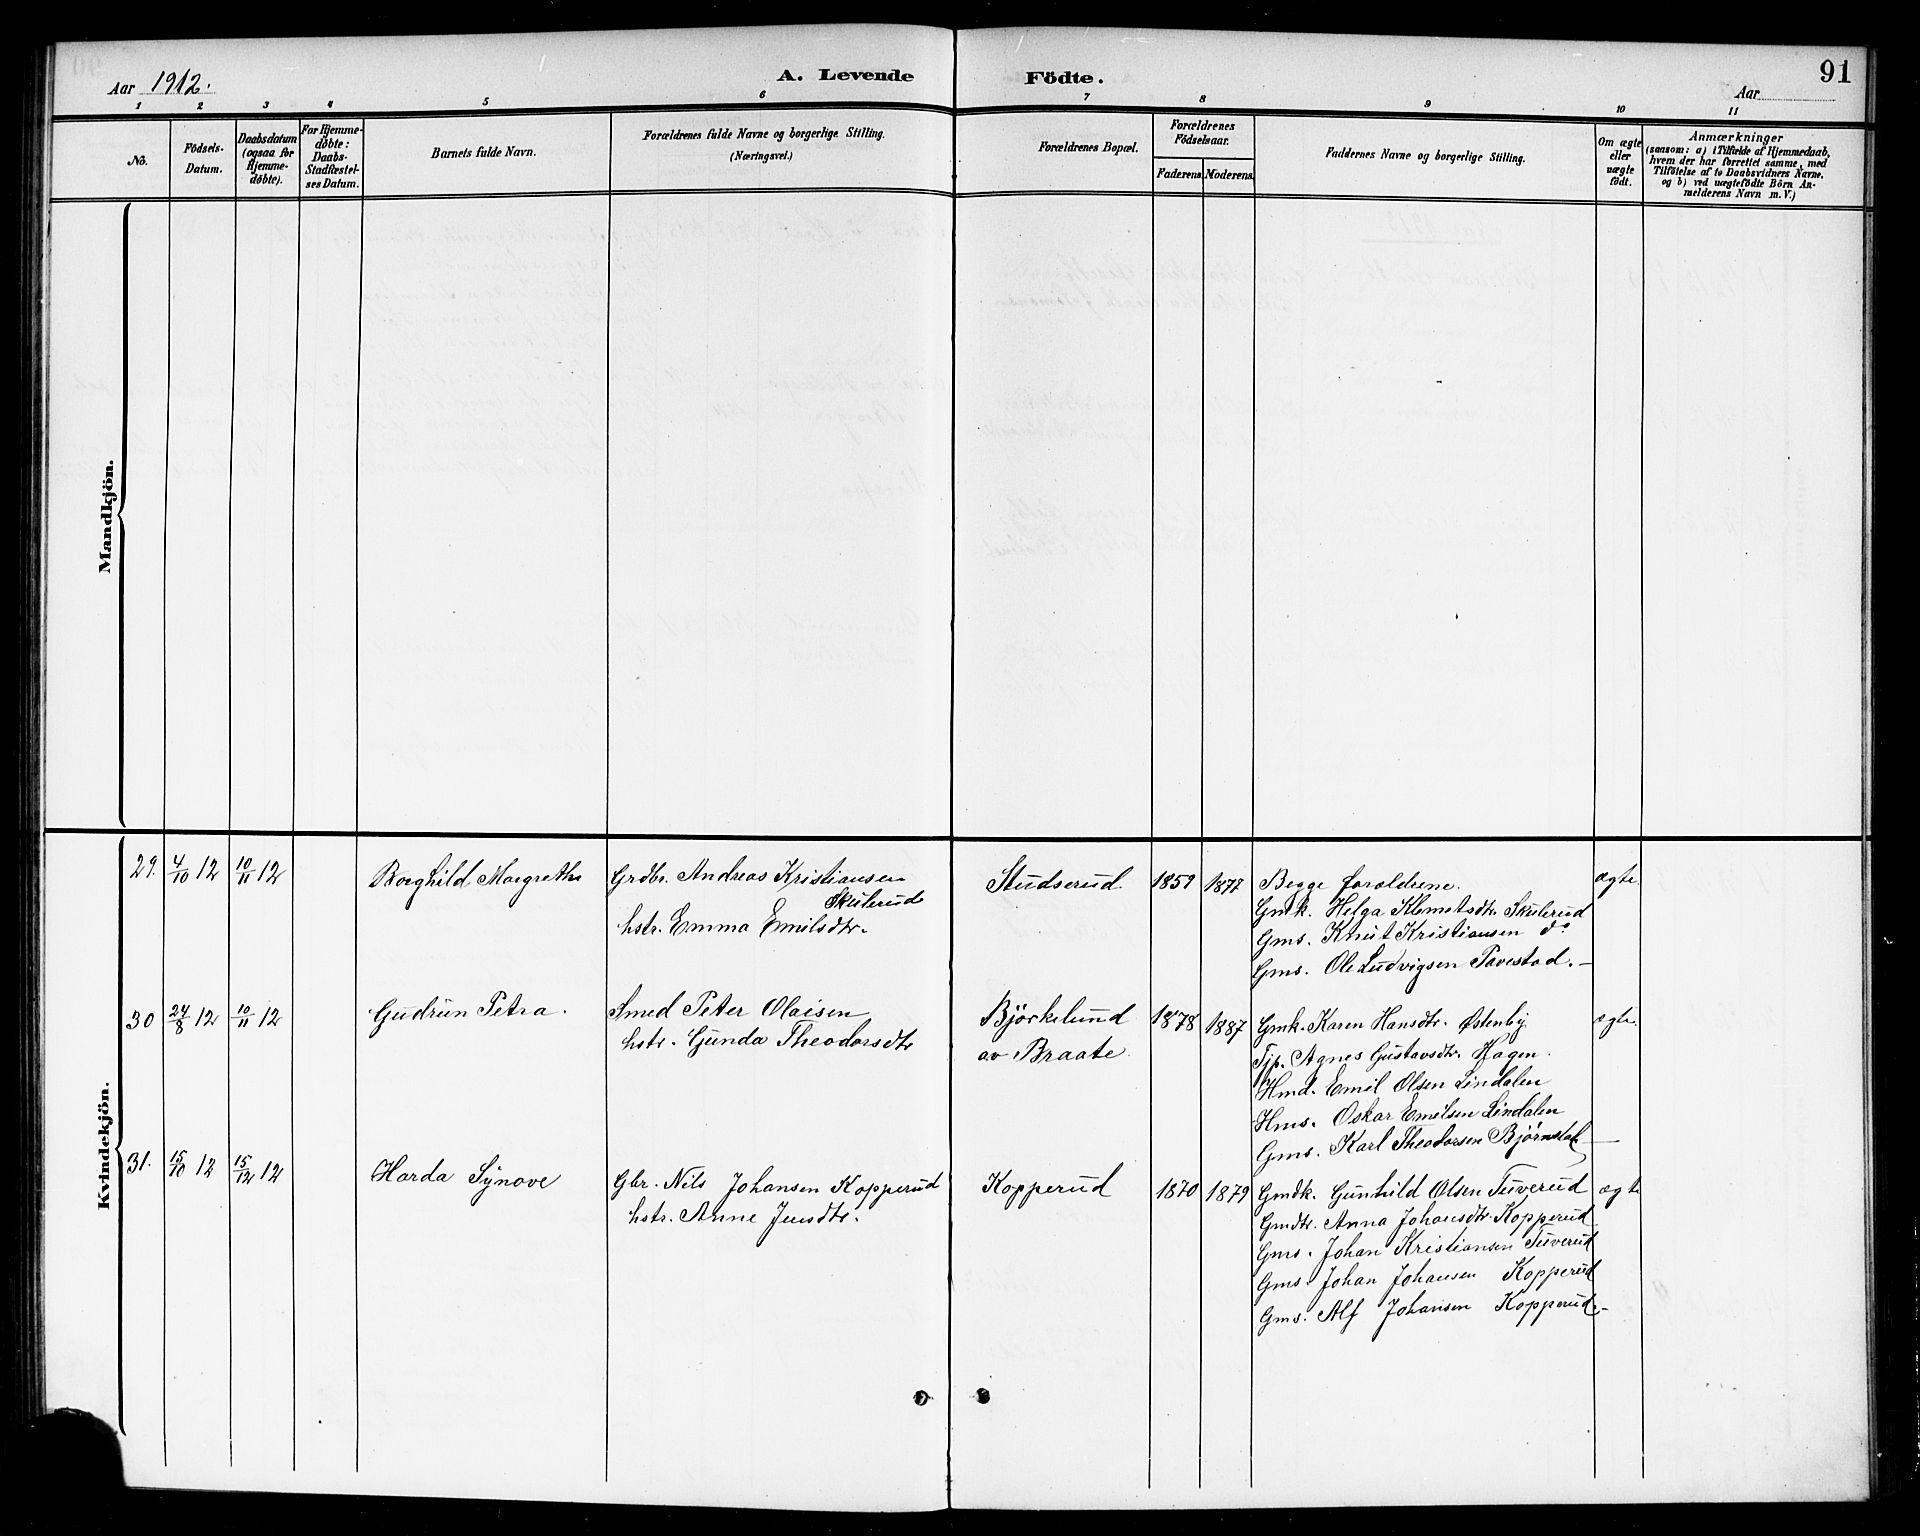 Aar 1912.
A. Levende Födte.
91
Aar
1 2 3 4 5 6 7 8 9 10 11
No.
Födsels-Datum.
Daabsdatum (ogsaa for Hjemme-döbte).
For Hjemme-döbte: Daabs-Stadfæstel-ses Datum.
Barnets fulde Navn.
Forældrenes fulde Navne og borgerlige Stilling.
(Næringsvei.)
Forældrenes Bopæl.
Forældrenes Födselsaar.
Faderens. Moderens.
Faddernes Navne og borgerlige Stilling.
Om ægte eller uægte født.
Anmærkninger
(saasom: a) i Tilfælde af Hjemmedaab,
hvem der har forrettet samme, med
Tilföielse af to Daabsvidners Navne,
og b) ved uægtefödte Börn An-
melderens Navn m. V.)
Mandkjön.
Kvindekjön.
29. 4/10 12 10/11 12 Borghild Margrethe Grdbr. Andreas Kristiansen Studserud 1859 1877 Begge forældrene. ægte
Skulerud
hstr. Emma Emilsdtr.
Gmk. Helga Klemetsdtr. Skulerud
Gms. Knut Kristiansen do
Gms. Ole Ludvigsen Tavestad.
30 24/8 12 10/11 12 Gudrun Petra. Smed Peter Olaisen Björkelund 1878 1887 Gmk. Karen Hansdtr. Østenby ægte
hstr. Gunda Theodorsdtr av Braate.
Tjp. Agnes Gustavsdtr. Hagen.
Hmd. Emil Olsen Lindalen
Hms. Oskar Emilsen Lindalen
Gms. Karl Theodorsen Björnstad
31. 15/10 12 15/12 12 Harda Synove Gbr. Nils Johansen Kopperud Kopperud 1870 1879 Gmdk. Gunhild Olsen Tuverud ægte
hstr. Anne Jensdtr.
Gmdtr. Anna Johansdtr. Kopperud
Gms. Johan Kristiansen Tuverud
Gms. Johan Johansen Kopperud
Gms. Alf Johansen Kopperud